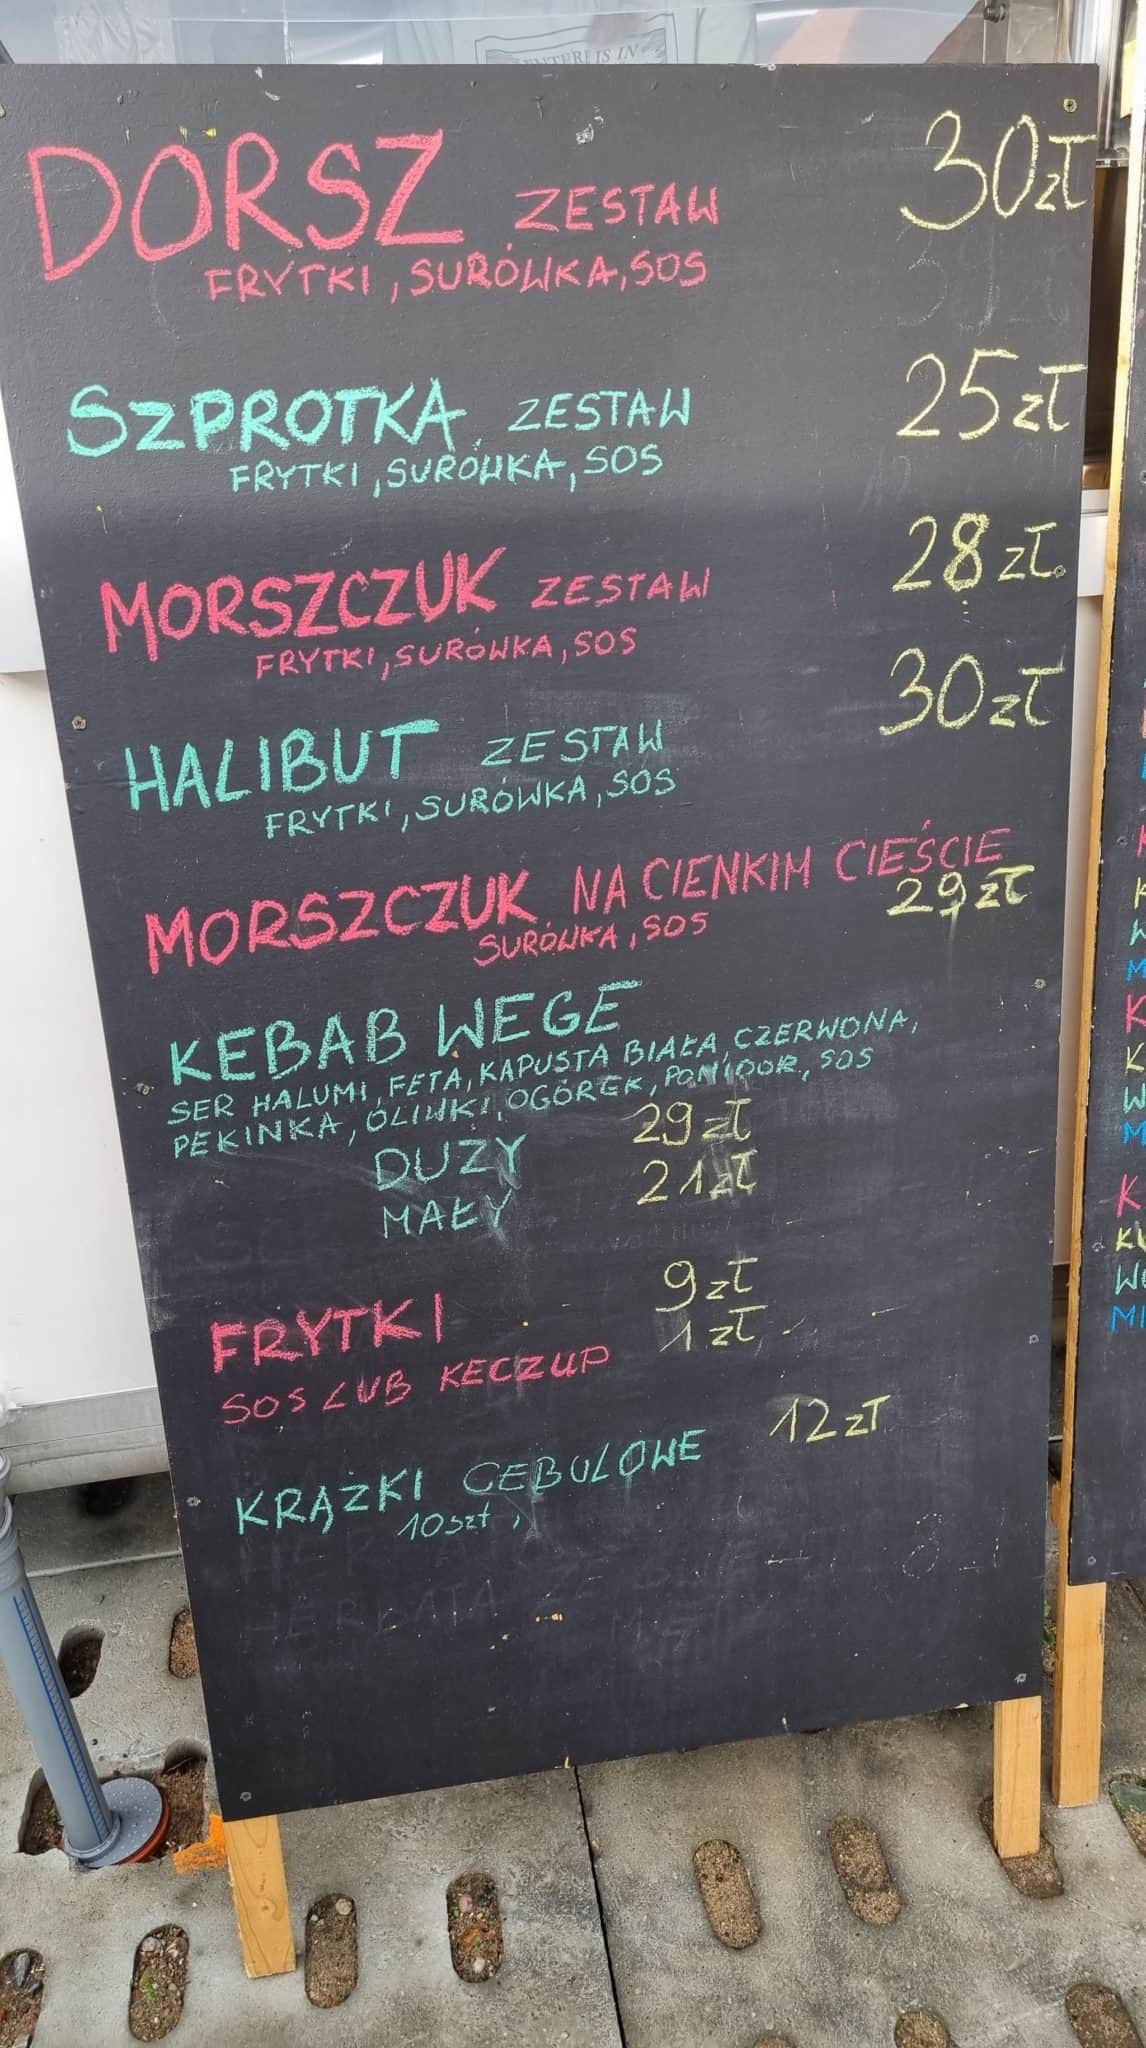 DORSZ ZESTAW 30zł
FRYTKI, SURÓWKA, SOS
SZPROTKA ZESTAW 25zł
FRYTKI, SURÓWKA, SOS
MORSZCZUK ZESTAW 28zł
FRYTKI, SURÓWKA, SOS
HALIBUT ZESTAW 30zł
FRYTKI, SURÓWKA, SOS
MORSZCZUK NA CIENKIM CIEŚCIE
SURÓWKA, SOS 29zł
KEBAB WEGE
SER HALUMI, FETA, KAPUSTA BIAŁA, CZERWONA,
PEKINKA, OLIWKI, OGÓREK, POMIDOR, SOS
DUZY 29zł
MAŁY 21zł
FRYTKI 9zł
SOS LUB KECZUP 1zł
KRĄŻKI CEBULOWE 12zł
10szt,
HERBATA